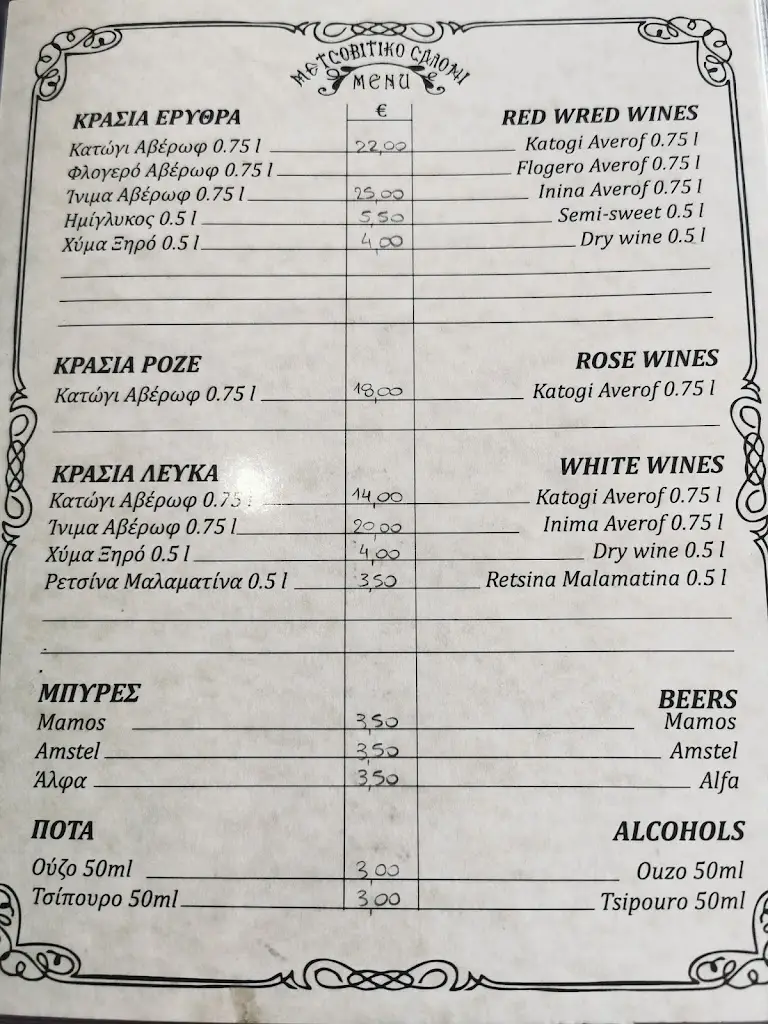 ΜΕΤΣΟΒΙΤΙΚΟ ΣΑΛΟΝΙ
MENU
€
ΚΡΑΣΙΑ ΕΡΥΘΡΑ RED WRED WINES
Κατώγι Αβέρωφ 0.75 l 22,00 Katogi Averof 0.75 l
Φλογερό Αβέρωφ 0.75 l Flogero Averof 0.75 l
Ίνιμα Αβέρωφ 0.75 l 25,00 Inina Averof 0.75 l
Ημίγλυκος 0.5 l 5,50 Semi-sweet 0.5 l
Χύμα Ξηρό 0.5 l 4,00 Dry wine 0.5 l
ΚΡΑΣΙΑ ΡΟΖΕ ROSE WINES
Κατώγι Αβέρωφ 0.75 l 18,00 Katogi Averof 0.75 l
ΚΡΑΣΙΑ ΛΕΥΚΑ WHITE WINES
Κατώγι Αβέρωφ 0.75 l 14,00 Katogi Averof 0.75 l
Ίνιμα Αβέρωφ 0.75 l 20,00 Inima Averof 0.75 l
Χύμα Ξηρό 0.5 l 4,00 Dry wine 0.5 l
Ρετσίνα Μαλαματίνα 0.5 l 3,50 Retsina Malamatina 0.5 l
ΜΠΥΡΕΣ BEERS
Mamos 3,50 Mamos
Amstel 3,50 Amstel
Άλφα 3,50 Alfa
ΠΟΤΑ ALCOHOLS
Ούζο 50ml 3,00 Ouzo 50ml
Τσίπουρο 50ml 3,00 Tsipouro 50ml